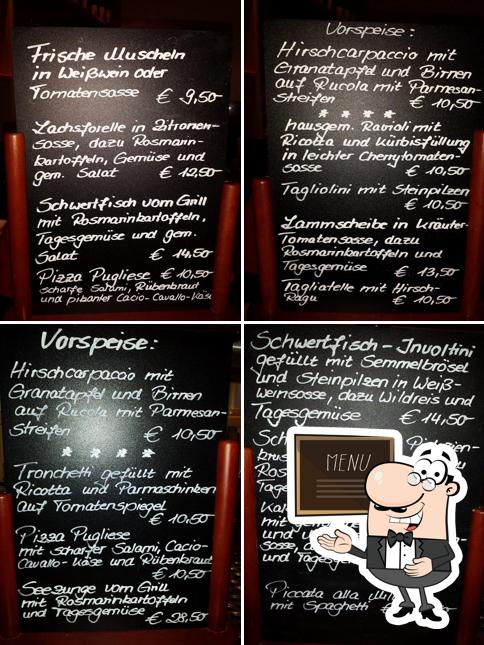 Frische Muscheln
in Weißwein oder
Tomatensasse
€ 9,50
Lachsforelle in Zitronen-
sosse, dazu Rosmarin-
kartoffeln, Gemüse und
gem. Salat € 12,50
Schwertfisch vom Grill
mit Rosmarinkartoffeln,
Tagesgemüse und gem.
Salat € 14,50
Pizza Pugliese € 10,50
scharfe Salami, Rübenkraut
und pikanter Cacio-Cavallo-Käse
Vorspeise:
Hirschcarpaccio mit
Granatapfel und Birnen
auf Rucola mit Parmesan-
streifen € 10,50
hausgem. Ravioli mit
Ricotta und Kürbisfüllung
in leichter Cherrytomaten-
sasse € 10,50
Tagliolini mit Steinpilzen
€ 10,50
Lammscheibe in Kräuter-
Tomatensasse, dazu
Rosmarinkartoffeln und
Tagesgemüse € 13,50
Tagliatelle mit Hirsch-
Ragu € 10,50
Vorspeise:
Hirschcarpaccio mit
Granatapfel und Birnen
auf Rucola mit Parmesan-
Streifen € 10,50
Tronchetti gefüllt mit
Ricotta und Parmaschinken
auf Tomatenspiegel
€ 10,50
Pizza Pugliese
mit scharfer Salami, Cacio-
Cavallo-Käse und Rübenkraut
€ 10,50
Seezunge vom Grill
mit Rosmarinkartoffeln
und Tagesgemüse
€ 28,50
Schwertfisch-Involtini
gefüllt mit Semmelbrösel
und Steinpilzen in Weiß-
weinsosse, dazu Wildreis und
Tagesgemüse € 14,50
MENU
Piccata alla
mit Spaghetti €